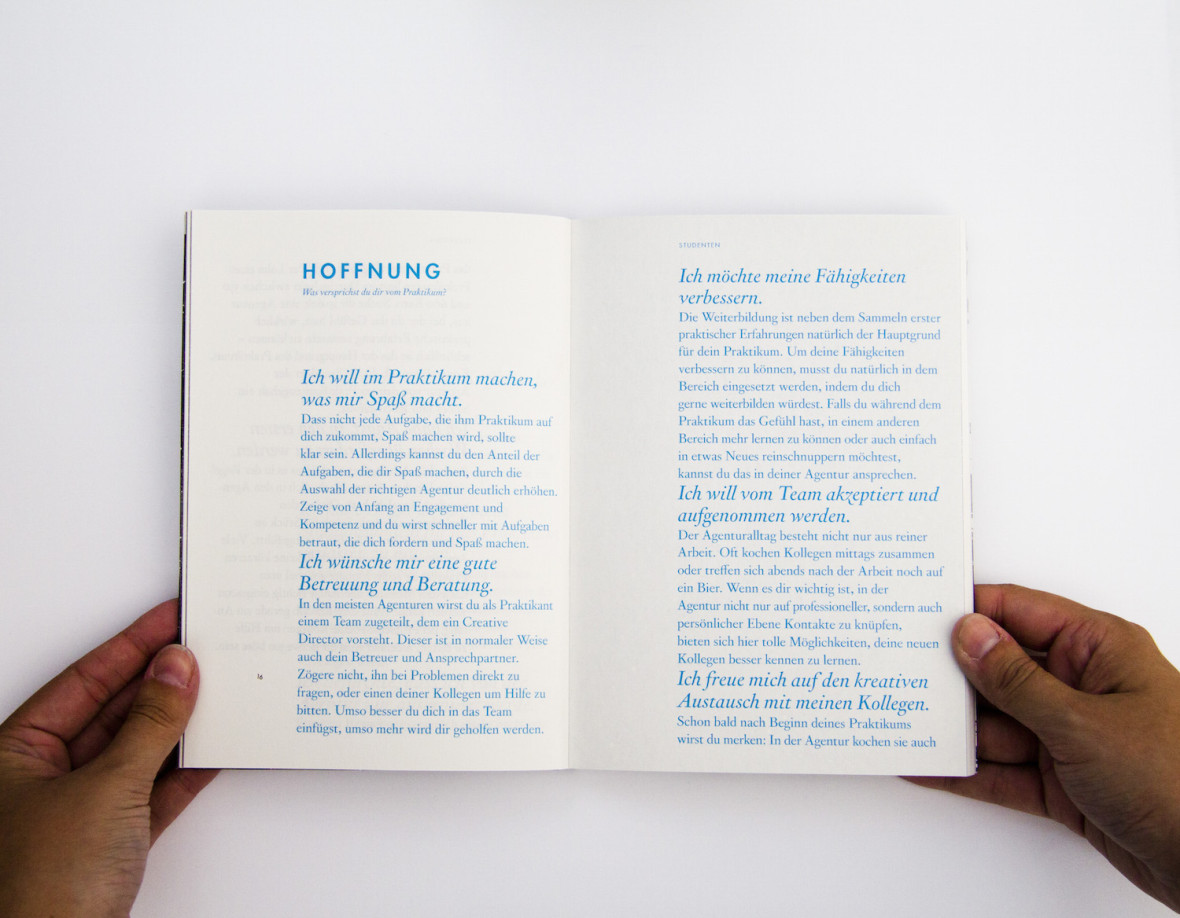 HOFFNUNG
Was versprichst du dir vom Praktikum?
Ich will im Praktikum machen,
was mir Spaß macht.
Dass nicht jede Aufgabe, die ihm Praktikum auf
dich zukommt, Spaß machen wird, sollte
klar sein. Allerdings kannst du den Anteil der
Aufgaben, die dir Spaß machen, durch die
Auswahl der richtigen Agentur deutlich erhöhen.
Zeige von Anfang an Engagement und
Kompetenz und du wirst schneller mit Aufgaben
betraut, die dich fordern und Spaß machen.
Ich wünsche mir eine gute
Betreuung und Beratung.
In den meisten Agenturen wirst du als Praktikant
einem Team zugeteilt, dem ein Creative
Director vorsteht. Dieser ist in normaler Weise
auch dein Betreuer und Ansprechpartner.
Zögere nicht, ihn bei Problemen direkt zu
fragen, oder einen deiner Kollegen um Hilfe zu
bitten. Umso besser du dich in das Team
einfügst, umso mehr wird dir geholfen werden.
16
STUDENTEN
Ich möchte meine Fähigkeiten
verbessern.
Die Weiterbildung ist neben dem Sammeln erster
praktischer Erfahrungen natürlich der Hauptgrund
für dein Praktikum. Um deine Fähigkeiten
verbessern zu können, musst du natürlich in dem
Bereich eingesetzt werden, indem du dich
gerne weiterbilden würdest. Falls du während dem
Praktikum das Gefühl hast, in einem anderen
Bereich mehr lernen zu können oder auch einfach
in etwas Neues reinschnuppern möchtest,
kannst du das in deiner Agentur ansprechen.
Ich will vom Team akzeptiert und
aufgenommen werden.
Der Agenturalltag besteht nicht nur aus reiner
Arbeit. Oft kochen Kollegen mittags zusammen
oder treffen sich abends nach der Arbeit noch auf
ein Bier. Wenn es dir wichtig ist, in der
Agentur nicht nur auf professioneller, sondern auch
persönlicher Ebene Kontakte zu knüpfen,
bieten sich hier tolle Möglichkeiten, deine neuen
Kollegen besser kennen zu lernen.
Ich freue mich auf den kreativen
Austausch mit meinen Kollegen.
Schon bald nach Beginn deines Praktikums
wirst du merken: In der Agentur kochen sie auch